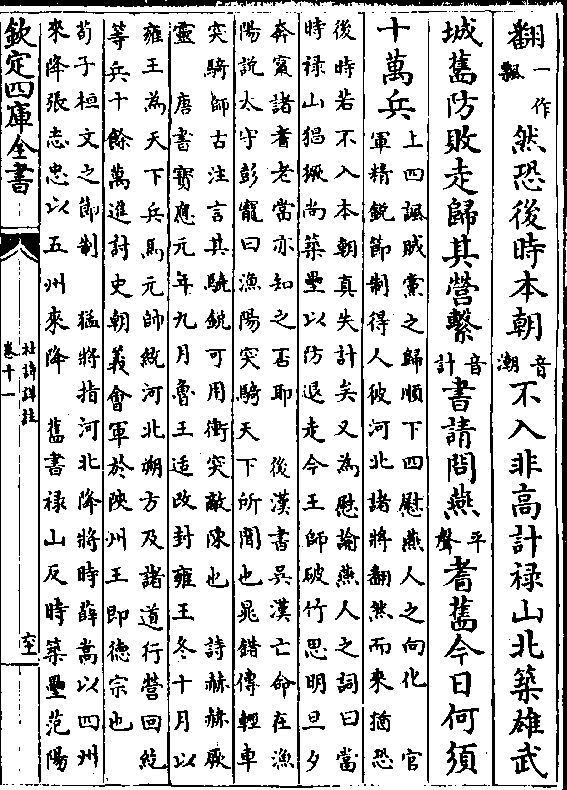 翻一作飄然恐後時本朝音潮不入非高計禄山北築雄武
城舊防敗走歸其營繫音計書請問燕平聲耆舊今日何須
十萬兵
上四諷賊黨之歸順下四慰燕人之向化　官
軍精鋭節制得人彼河北諸將翻然而來猶恐
後時若不入本朝真失計矣又為慰諭燕人之詞曰當
時禄山猖獗尚築壘以防退走今王師破竹思明旦夕
奔竄諸耆老當亦知之否耶　後漢書吳漢亡命在漁
陽説太守彭寵曰漁陽突騎天下所聞也晁錯傳輕車
突騎師古注言其驍鋭可用衝突敵陳也　詩赫赫厥
靈　唐書寶應元年九月魯王适改封雍王冬十月以
雍王為天下兵馬元師統河北朔方及諸道行營回紇
等兵十餘萬進討史朝義會軍於陜州王即德宗也
荀子桓文之節制　猛將指河北降將時薛嵩以四州
來降張志忠以五州來降　舊書禄山反時築壘范陽
欽定四庫全書
杜詩詳註
卷十一